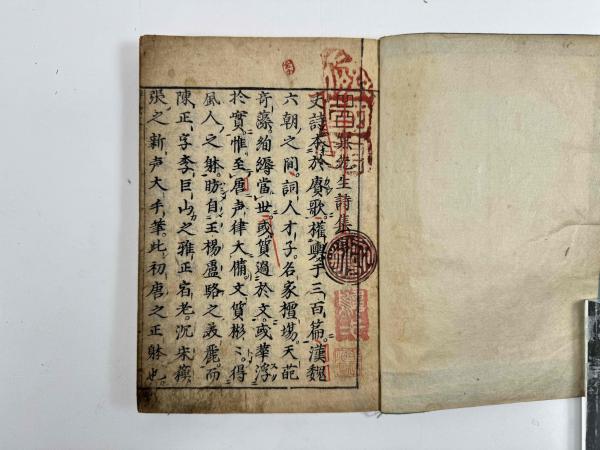 先生詩集
夫詩本於賡歌權輿乎三百篇漢魏
六朝之間詞人才子名家擅場天葩
奇藻絢縟當世或質過於文或華浮
於實惟至唐声律大備文質彬〻得
風人之躰昉自王楊盧駱之美麗而
陳正字李巨山之雅正宿老沉宋蘓
張之新声大手筆此初唐之正躰也